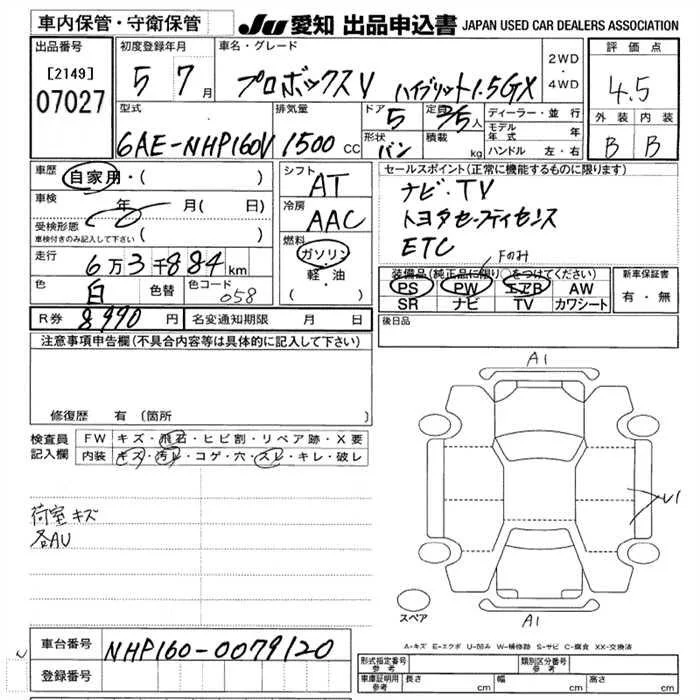 車内保管・守衛保管 JU 愛知 出品申込書 JAPAN USED CAR DEALERS ASSOCIATION
出品番号 初度登録年月 車名・グレード 2WD・4WD 評価点
[2149] 07027 5 7月 プロボックスV ハイブリット1.5GX 4.5
型式 排気量 ドア 5 定員 2/5人 ディーラー・並行 外装 内装
6AE-NHP160V 1500cc 形状 バン 積載 kg モデル年式 年 B B
ハンドル 左・右
車歴 自家用・( ) シフト AT セールスポイント(正常に機能するものに限ります)
車検 年 月( 日) 冷房 AAC ナビ・TV
受検形態 ( ) トヨタセーフティセンス
車検付きのみ記入して下さい
燃料 ガソリン・軽・油 ( ) ETC
走行 6万3千884km Fのみ
装備品(純正品に限り○をつけてください) 新車保証書
色 白 色替 色コード 058 PS PW エアB AW 有・無
SR ナビ TV カワシート
R券 8990円 名変通知期限 月 日 後日品
注意事項申告欄(不具合内容等は具体的に記入して下さい)
修復歴 有(箇所
検査員記入欄 FW キズ・飛石・ヒビ割・リペア跡・X要
内装 キズ・汚レ・コゲ・穴・スレ・キレ・破レ
A1
U1
荷室キズ
各AU
スペア
A1
A-キズ E-エクボ U-凹み W-補修跡 S-サビ C-腐食 XX-交換済
車台番号 NHP160-0079120
登録番号
形式指定番号 参考 類別区分番号 参考
車庫証明用 参考 長さ cm 幅 cm 高さ cm